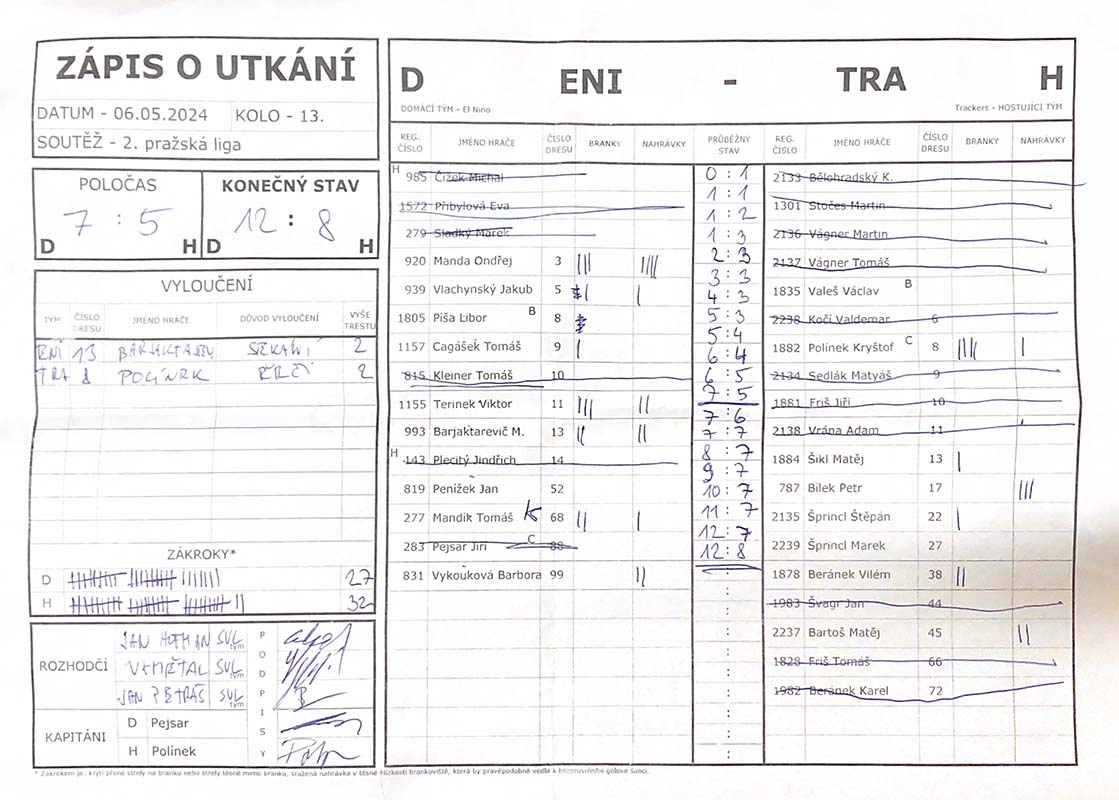 ZÁPIS O UTKÁNÍ
DATUM - 06.05.2024 KOLO - 13.
SOUTĚŽ - 2. pražská liga
POLOČAS
7 : 5
D H
KONEČNÝ STAV
12 : 8
D H
VYLOUČENÍ
TÝM ČÍSLO DRESU JMÉNO HRÁČE DŮVOD VYLOUČENÍ VÝŠE TRESTU
ENI 13 2
TRA 8 2
ZÁKROKY*
D 27
H 32
ROZHODČÍ
JAN HOFMAN SVL
SVL
JAN PETRÁŠ SVL
PODPISY
KAPITÁNI
D Pejsar
H Polínek
D ENI - TRA H
DOMÁCÍ TÝM - El Nino Trackers - HOSTUJÍCÍ TÝM
REG. ČÍSLO JMÉNO HRÁČE ČÍSLO DRESU BRANKY NAHRÁVKY PRŮBĚŽNÝ STAV REG. ČÍSLO JMÉNO HRÁČE ČÍSLO DRESU BRANKY NAHRÁVKY
H 985 Čížek Michal
1572 Přibylová Eva
279 Sladký Marek
920 Manda Ondřej 3 ||| ||||
939 Vlachynský Jakub 5 | |
1805 Píša Libor B 8
1157 Cagášek Tomáš 9 |
815 Kleiner Tomáš 10
1155 Terinek Viktor 11 ||| ||
993 Barjaktarevič M. 13 || ||
H 143 Plecitý Jindřich 14
819 Penížek Jan 52
277 Mandík Tomáš K 68 || |
283 Pejsar Jiří C 88
831 Vykouková Barbora 99 ||
0 : 1
1 : 1
1 : 2
1 : 3
2 : 3
3 : 3
4 : 3
5 : 3
5 : 4
6 : 4
6 : 5
7 : 5
7 : 6
7 : 7
8 : 7
9 : 7
10 : 7
11 : 7
12 : 7
12 : 8
2133 Bělohradský K.
1301 Stočes Martin
2136 Vágner Martin
2137 Vágner Tomáš
1835 Valeš Václav B
2238 Kočí Valdemar 6
1882 Polínek Kryštof C 8 |||| |
2134 Sedlák Matyáš 9
1881 Friš Jiří 10
2138 Vrána Adam 11
1884 Šikl Matěj 13 |
787 Bílek Petr 17 |||
2135 Šprincl Štěpán 22 |
2239 Šprincl Marek 27
1878 Beránek Vilém 38 ||
1983 Švagr Jan 44
2237 Bartoš Matěj 45 ||
1828 Friš Tomáš 66
1982 Beránek Karel 72
* Zákrokem je, krytí přímé střely na branku nebo střely těsně mimo branku, sražená nahrávka v těsné blízkosti brankoviště, která by pravěpodobně vedla k bezprostřední gólové šanci.